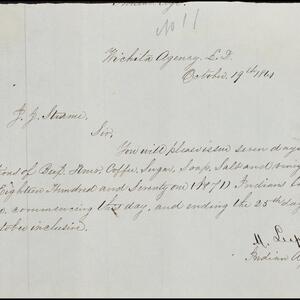 No 11
Wichita Agency, L.D.
October 19th 1861
J. J. Sturm
Sir,
You will please issue seven days
tions of Beef, Flour, Coffee, Sugar, Soap, Salt and
Eighteen Hundred and Seventy one (1871) Indians
commencing this day, and ending the 25th day
tober inclusive.
M. Leep
Indian A